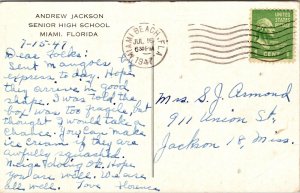 ANDREW JACKSON
SENIOR HIGH SCHOOL
MIAMI, FLORIDA
7-15-47
Dear folks:
Sent mangoes by
express to-day. Hope
they arrive in good
shape. I was told the
box was too, but
thought I would take
chance. You can make
ice cream if they are
awfully squashed.
Hope
you are well. We are
all well. Love Florence
MIAMI BEACH, FLA.
JUL 15
PM
1947
1 CENT 1
Mrs. S. J. Armond
911 Union St,
Jackson 18, Miss.